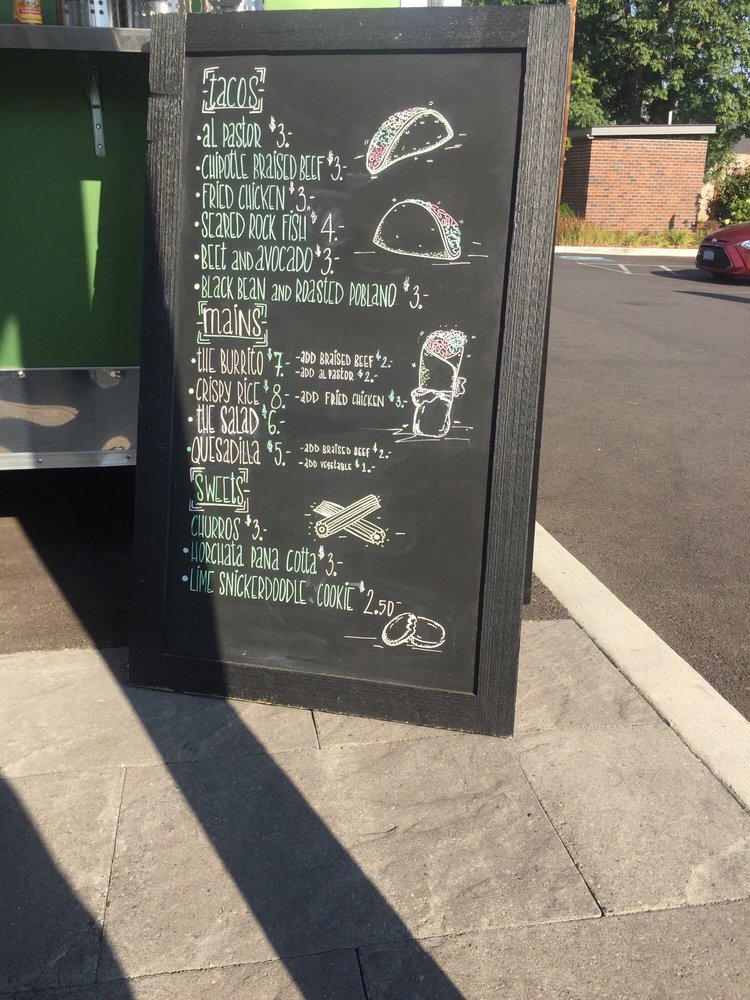 tacos
• al pastor $3.-
• chipotle braised beef $3.-
• fried chicken $3.-
• seared rock fish $4.-
• beet and avocado $3.-
• black bean and roasted poblano $3.-
mains
• the burrito $7.- -add braised beef $2.-
-add al pastor $2.-
• crispy rice $8.- -add fried chicken $3.-
• the salad $6.-
• quesadilla $5.- -add braised beef $2.-
-add vegetable $1.-
sweets
churros $3.-
• horchata pana cotta $3.-
• lime snickerdoodle cookie $2.50-